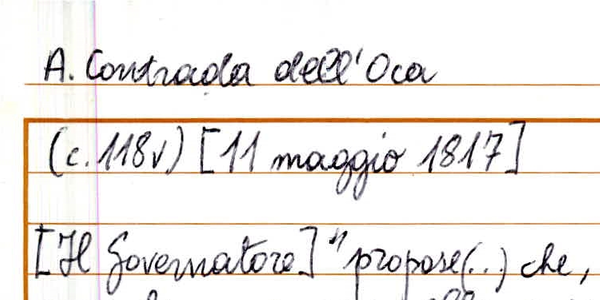 A. Contrada dell'Oca
(c. 118v) [11 maggio 1817]
[Il Governatore] "propose(..) che,